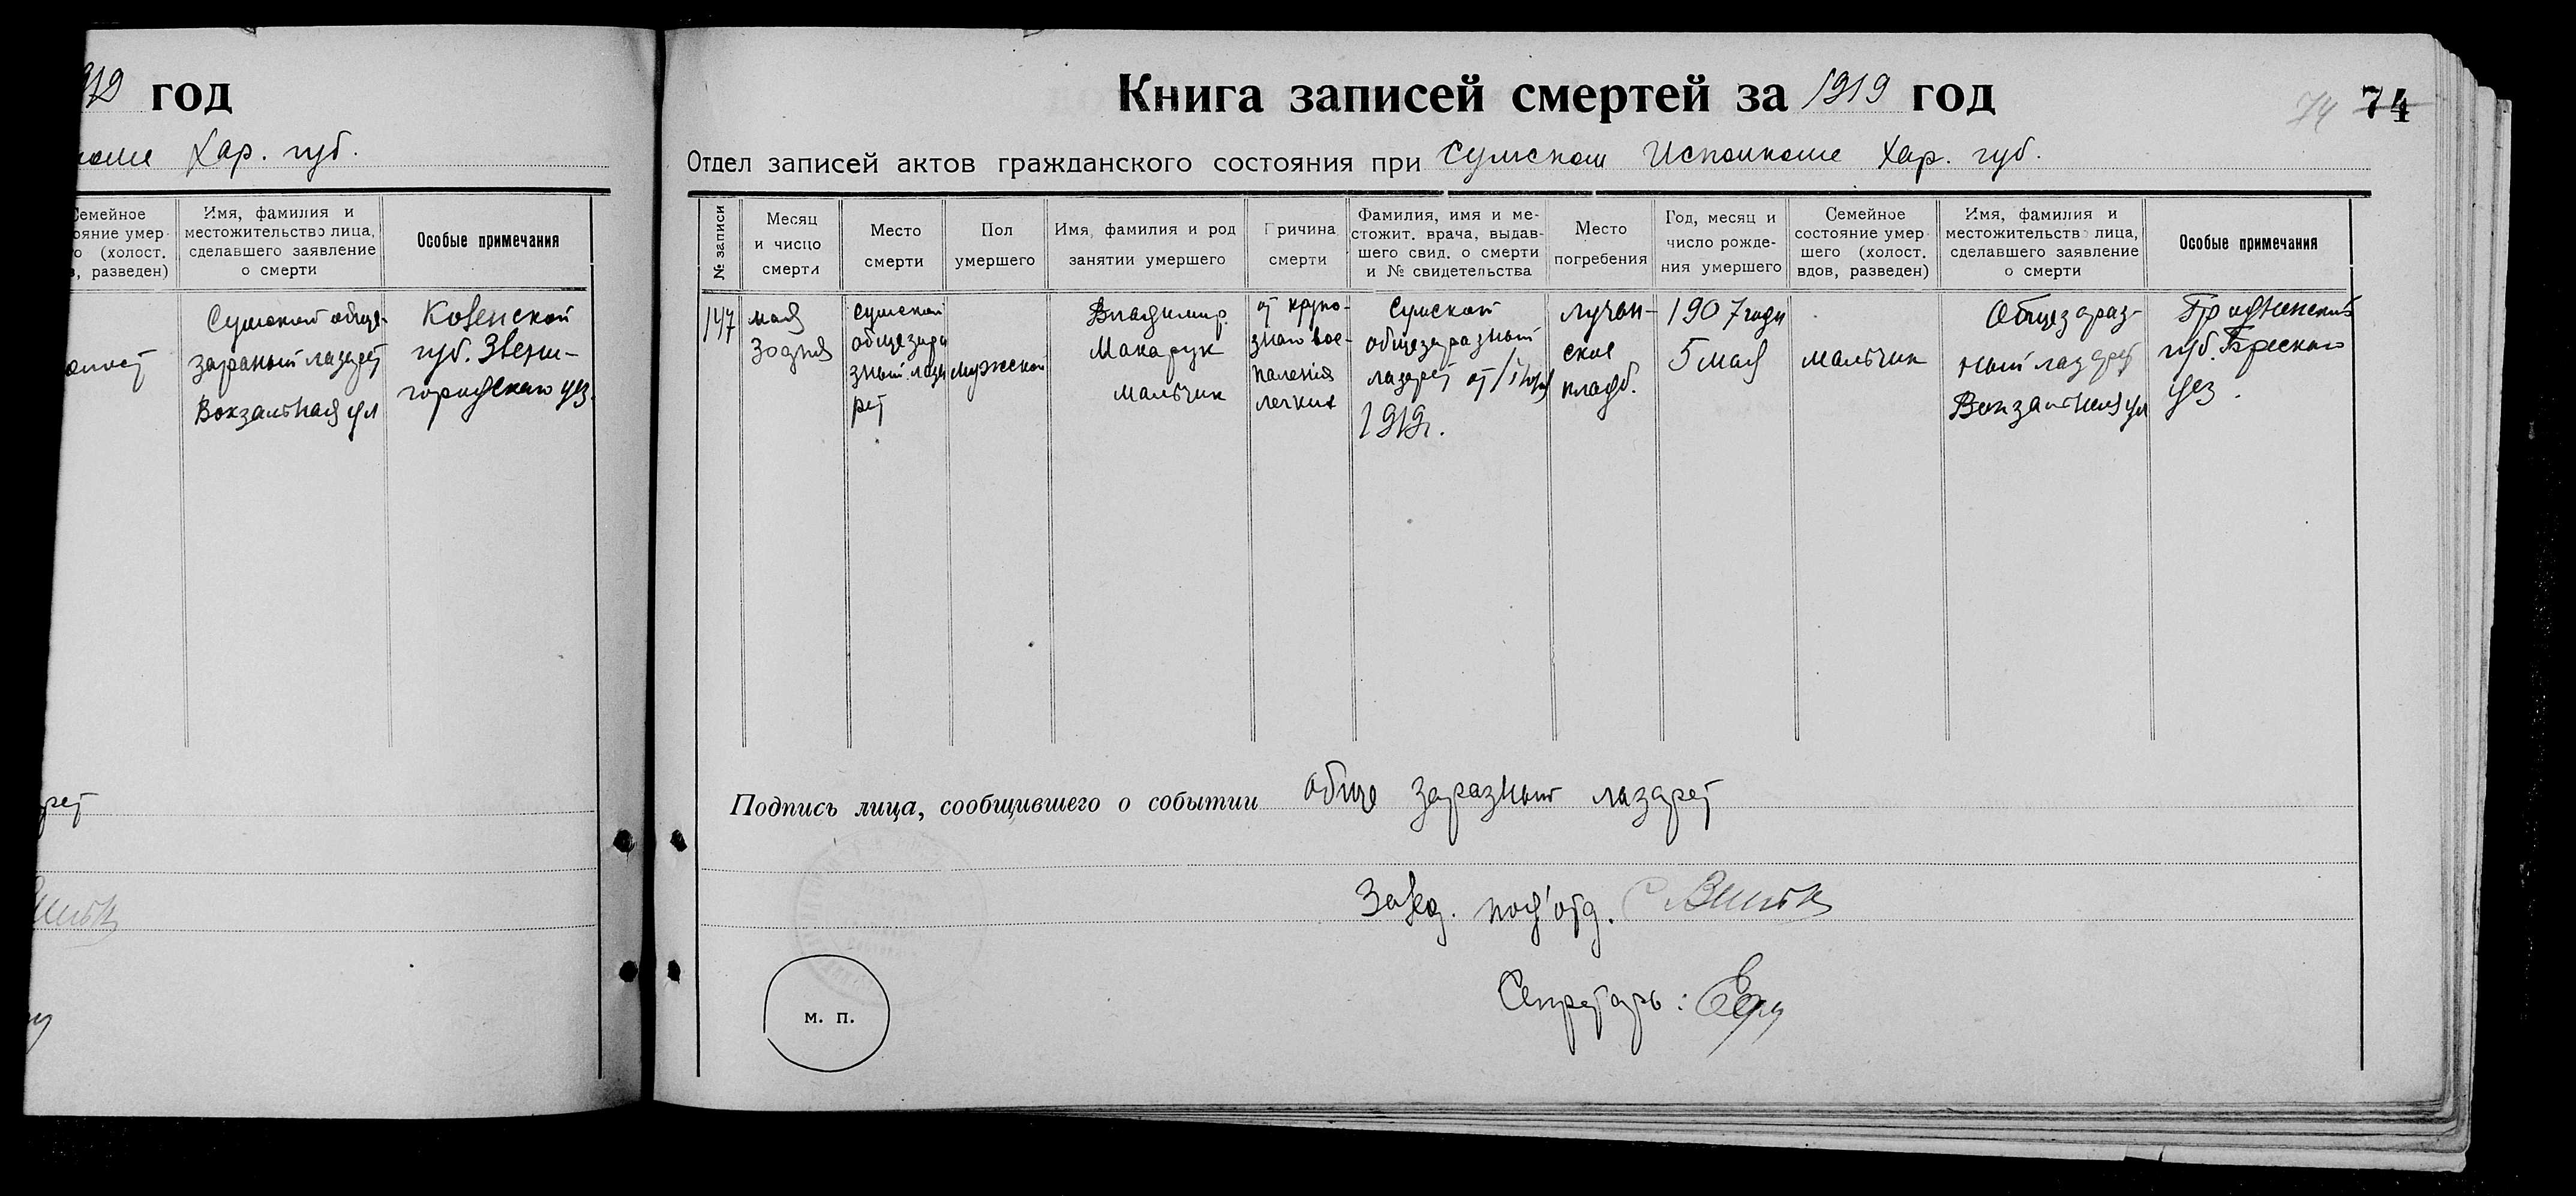 год
Хар. губ.
Семейное
ояние умер-
о (холост.
в, разведен)
Имя, фамилия и
местожительство лица,
сделавшего заявление
о смерти
Особые примечания
Сумской обще-
заразный лазарет
Вокзальная ул
Ковенской
губ. Звени-
городского уез.
Книга записей смертей за 1919 год
74 74
Отдел записей актов гражданского состояния при Сумском Исполкоме Хар. губ.
№ записи
Месяц
и число
смерти
Место
смерти
Пол
умершего
Имя, фамилия и род
занятии умершего
Причина
смерти
Фамилия, имя и ме-
стожит. врача, выдав-
шего свид. о смерти
и № свидетельства
Место
погребения
Год, месяц и
число рожде-
ния умершего
Семейное
состояние умер-
шего (холост.
вдов, разведен)
Имя, фамилия и
местожительство лица,
сделавшего заявление
о смерти
Особые примечания
147
мая
30 дня
Сумской
общезара
зный лаза
рет
мужской
Владимир
Макарук
мальчик
от крупо-
зного вос-
паления
легких
Сумской
общезаразный
лазарет от
1919г.
Лучан-
ское
кладб.
1907 года
5 мая
мальчик
Общезараз-
ный лазарет
Вокзальная ул
Гродненской
губ. Брескаго
уез.
Подпись лица, сообщившего о событии обще заразный лазарет
Завед. под'отд.
Секретарь:
м. п.